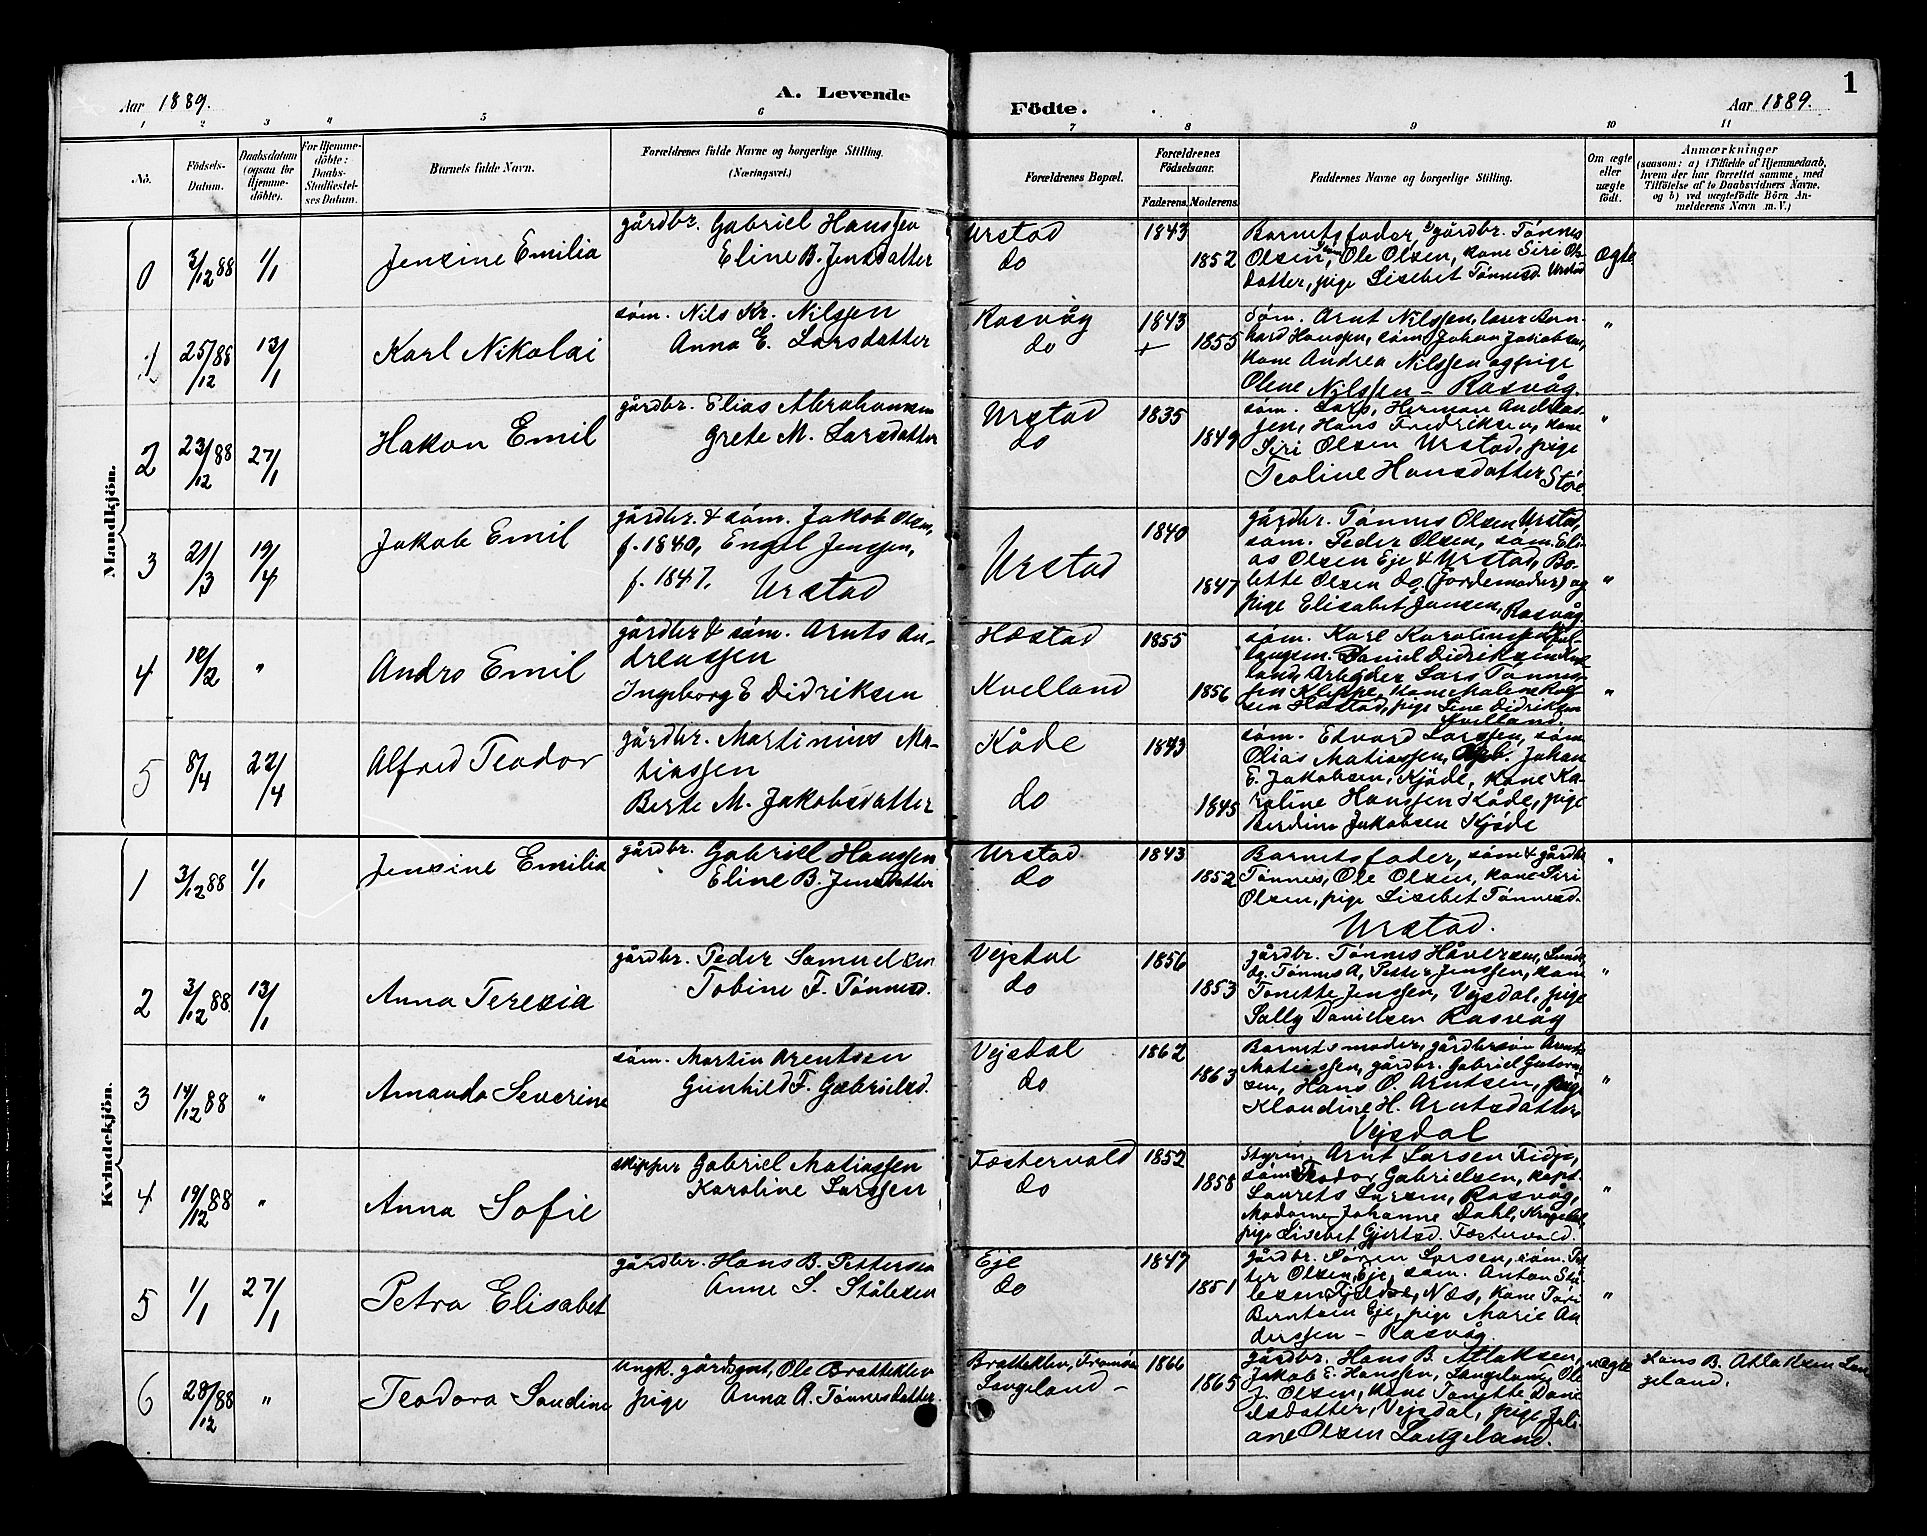 Aar 1889.
A. Levende
Födte.
Aar 1889.
1
1 2 3 4 5 6 7 8 9 10 11
No.
Födsels-
Datum.
Daabsdatum
(ogsaa för
Hjemme-
döbte).
For Hjemme-
döbte:
Daabs-
Stadfæstel-
ses Datum.
Barnets fulde Navn.
Forældrenes fulde Navne og borgerlige Stilling.
(Næringsvei.)
Forældrenes Bopæl.
Forældrenes
Födselsaar.
Faderens. Moderens.
Faddernes Navne og borgerlige Stilling.
Om ægte
eller
uægte
födt.
Anmærkninger
(saasom: a) i Tilfælde af Hjemmedaab,
hvem der har forrettet samme, med
Tilföielse af to Daabsvidners Navne,
og b) ved uægtefödte Börn An-
melderens Navn m. V.)
Mandkjön.
0 3/12 88 1/1 Jensine Emilia
gårdbr. Gabriel Hanssen
Eline B. Jensdatter
Urstad
do
1843
1852
Barnets fader, gårdbr. Tønnes
Olsen, Ole Olsen, kone Siri Ols-
datter, pige Lisebet Tønnesd. Urstad
ægte
1 25/12 88 13/1 Karl Nikolai
søm. Nils Kr. Nilssen
Anna E. Larsdatter
Rasvåg
do
1843
+
1855
Søm. Arnt Nilssen, lærer Bern-
hard Hanssen, søm. Johan Jakobsen,
kone Andrea Nilssen og pige
Olene Nilssen – Rasvåg.
"
2 23/12 88 27/1 Hakon Emil
gårdbr. Elias Abrahamsen
Grete M. Larsdatter
Urstad
do
1835
1849
søm. Lars, Herman Andreas-
sen, Hans Fredriksen, kone
Siri Olsen Urstad, pige
Teoline Hansdatter
"
3 21/3 19/4 Jakob Emil
gårdbr. & søm. Jakob Olsen,
f. 1840, Engel Jenssen,
f. 1847. Urstad
Urstad
1840
1847
gårdbr. Tønnes Olsen Urstad,
søm. Peder Olsen, søm. Eli-
as Olsen Eje & Urstad, Bo-
lette Olsen do (Jordemoder) og
pige Elisabet Jansen, Rasvåg.
"
4 " Andro Emil
gårdbr & søm. Arnts An-
dreassen
Ingeborg E Didriksen
Hæstad
Kvelland
1855
1856
søm. Karl
Daniel Didriksen Kvel-
land, Arbejder Lars Tønnes-
sen Kleppe, kone Malene
sen Hæstad, pige Lene Didriksen
Kvelland.
"
5 8/4 22/4 Alfred Teodor
gårdbr. Martinius Ma-
tiassen
Berte M. Jakobsdatter
Kåde
do
1843
1845
søm. Edvard Larssen, søm
Olias Matiassen, Johan
E. Jakobsen, Kjøde, kone Ka-
roline Hanssen Kåde, pige
Berdine Jakobsen Kjøde
Kvindekjön.
1 3/12 88 1/1 Jensine Emilia
gårdbr. Gabriel Hanssen
Eline B. Jensdatter
Urstad
do
1843
1852
Barnets fader, søm & gårdbr
Tønnes, Ole Olsen, kone Siri
Olsen, pige Lisebet Tønnesd.
Urstad.
"
2 3/12 88. 13/1 Anna Teresia
gårdbr. Peder Samuelsen
Tobine F. Tønnesd.
Vejsdal
do
1856
1853
gårdbr. Tønnes Håversen,
Tønnes A, Petter Jenssen, kone
Tonette Jenssen, Vejsdal, pige
Sally Danielsen Rasvåg
"
3 14/12 88 " Amanda Severine
søm. Martin Arentsen
Gunhild F. Gabrielsd.
Vejsdal
do
1862
1863
Barnets moder, gårdbrsøn
Matiassen, gårdbr. Gabriel
sen, Hans O. Arntsen, pige
Klaudine H. Arntsdatter,
Vejsdal
"
4 19/12 88 " Anna Sofie
skipper Gabriel Matiassen
Karoline Larssen
Fæstervold
do
1852
1858
Styrm. Arnt Larsen Fidje,
søm. Teodor Gabrielsen, kapt.
Laurets Larsen, Rasvåg,
Madame Johanne Dahl,
pige Lisebet Gjertsd. Fæstervold.
"
5 1/1 27/1 Petra Elisabet
gårdbr. Hans B. Pettersen
Anne S. Stålesen
Eje
do
1847
1851
gårdbr. Søren Larsen, søm. Pet-
ter Olsen, Eje, søm. Anton Stå-
lesen Næs, kone
Berntsen Eje, pige Marie An-
derssen – Rasvåg.
"
6 28/12 88 " Teodora Sandine
Ungk. gårdsgut, Ole Bratteklev
pige Anna A. Tønnesdatter.
Bratteklev, Tromø
Langeland –
1866
1865
gårdbr. Hans B. Atlaksen,
Jakob E. Hanssen, Langeland, Ole
J. Olsen, kone Tonette Dani-
elsdatter, Vejsdal, pige Juli-
ane Olsen Langeland.
uægte
Hans B. Atlaksen Lan-
geland.